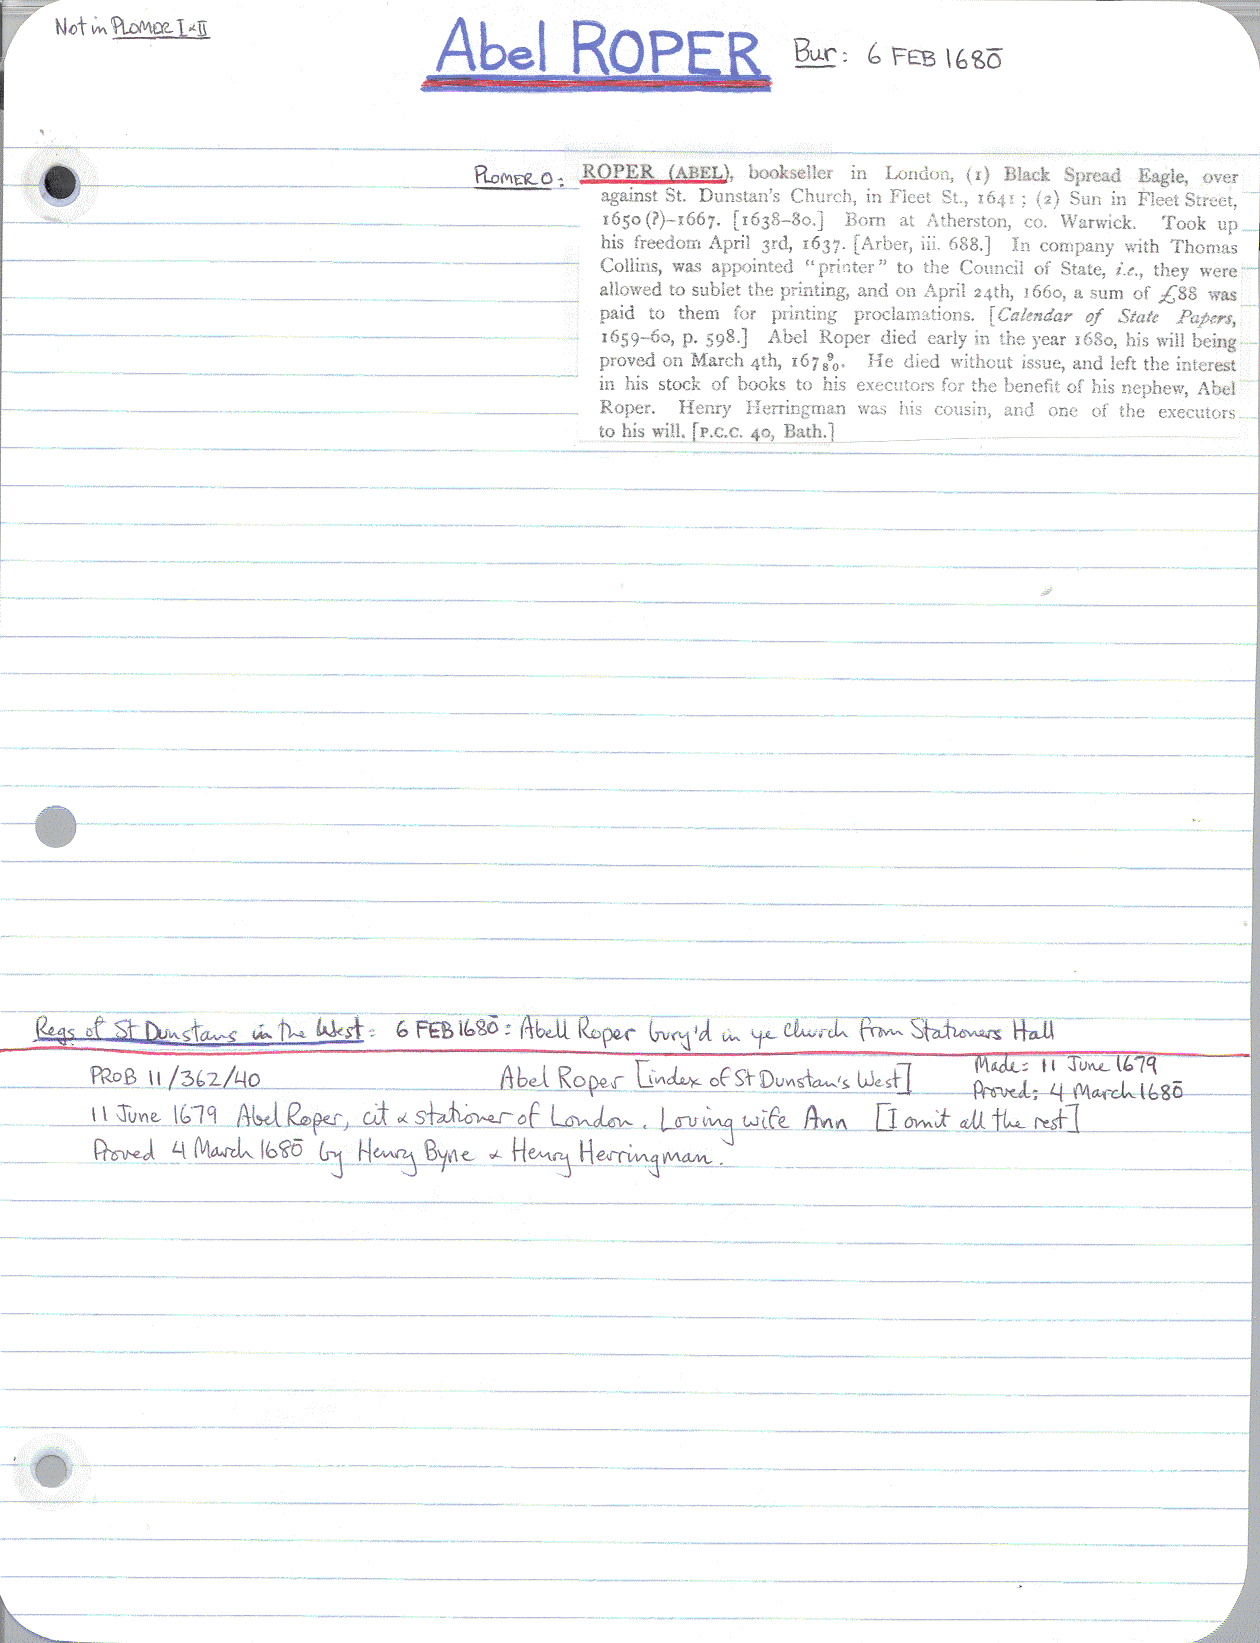 Not in PLOMER I & II
Abel ROPER Bur: 6 FEB 1680̄
PLOMER O: ROPER (ABEL), bookseller in London, (1) Black Spread Eagle, over
against St. Dunstan's Church, in Fleet St., 1641; (2) Sun in Fleet Street,
1650 (?)–1667. [1638–80.] Born at Atherston, co. Warwick. Took up
his freedom April 3rd, 1637. [Arber, iii. 688.] In company with Thomas
Collins, was appointed "printer" to the Council of State, i.e., they were
allowed to sublet the printing, and on April 24th, 1660, a sum of £88 was
paid to them for printing proclamations. [Calendar of State Papers,
1659–60, p. 598.] Abel Roper died early in the year 1680, his will being
proved on March 4th, 167 9/80. He died without issue, and left the interest
in his stock of books to his executors for the benefit of his nephew, Abel
Roper. Henry Herringman was his cousin, and one of the executors
to his will. [P.C.C. 40, Bath.]
Regs of St Dunstans in the West: 6 FEB 1680̄: Abell Roper bury'd in ye church from Stationers Hall
PROB 11/362/40 Abel Roper [index of St Dunstan's West] Made: 11 June 1679
Proved: 4 March 1680̄
11 June 1679 Abel Roper, cit & stationer of London. Loving wife Ann [I omit all the rest]
Proved 4 March 1680̄ by Henry Byne & Henry Herringman.